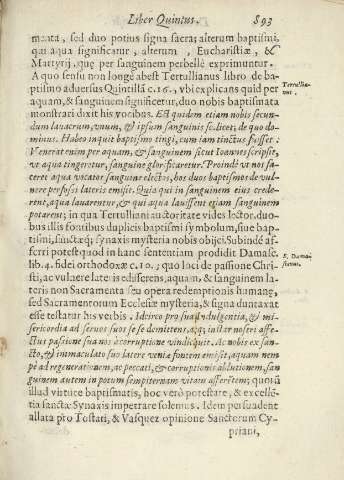 Liber Quintus. 893
menta, sed duo potius signa sacra; alterum baptismi,
qui aqua significatur, alterum, Eucharistiæ, &
Martyrij, quę per sanguinem perbellè exprimuntur.
A quo sensu non longè abest Tertullianus libro de ba-
ptismo adversus Quintillã c. 16., vbi explicans quid per
aquam, & sanguinem significetur, duo nobis baptismata
monstrari dixit his vocibus. Est quidem etiam nobis secun-
dum lauacrum, vnum, & ipsum sanguinis scilicet; de quo do-
minus. Habeo inquit baptismo tingi, cum iam tinctus fuisset.
Venerat enim per aquam, & sanguinem sicut Ioannes scripsit,
vt aqua tingeretur, sanguine glorificaretur. Proinde vt nos fa-
ceret aqua vocatos, sanguine electos, hos duos baptismos de vul-
nere perfossi lateris emisit. Quia qui in sanguinem eius crede-
rent, aqua lauarentur, & qui aqua lauissent etiam sanguinem
potarent; in qua Tertulliani auctoritate vides lector, duo-
bus illis fontibus duplicis baptismi symbolum, siue bap-
tismi, sanctæq; synaxis mysteria nobis obijci. Subinde af-
ferri potest quod in hanc sententiam prodidit Damasc.
lib. 4. fidei orthodoxæ c. 10.; quo loci de passione Chri-
sti, ac vulnere lateris edisserens, aquam, & sanguinem la-
teris non Sacramenta seu opera redemptionis humanę,
sed Sacramentorum Ecclesiæ mysteria, & signa duntaxat
esse testatur his verbis. Idcirco pro sua indulgentia, & mi-
sericordia ad seruos suos se se demittens, atq; instar nostri affe-
ctus passione sua nos à corruptione vindicauit. Ac nobis ex san-
cto, & immaculato suo latere veniæ fontem emisit, aquam nem
pè ad regenerationem, ac peccati, & corruptionis ablutionem, san
guinem autem in potum sempiternam vitam afferẽtem; quorũ
illud virtute baptismatis, hoc verò potestate, & excellẽ-
tia sanctæ Synaxis impetrare solemus. Idem persuadent
allata pro Tostati, & Vasquez opinione Sanctorum Cy-
priani,
Tertullia-
nus.
S. Dama-
scenus.